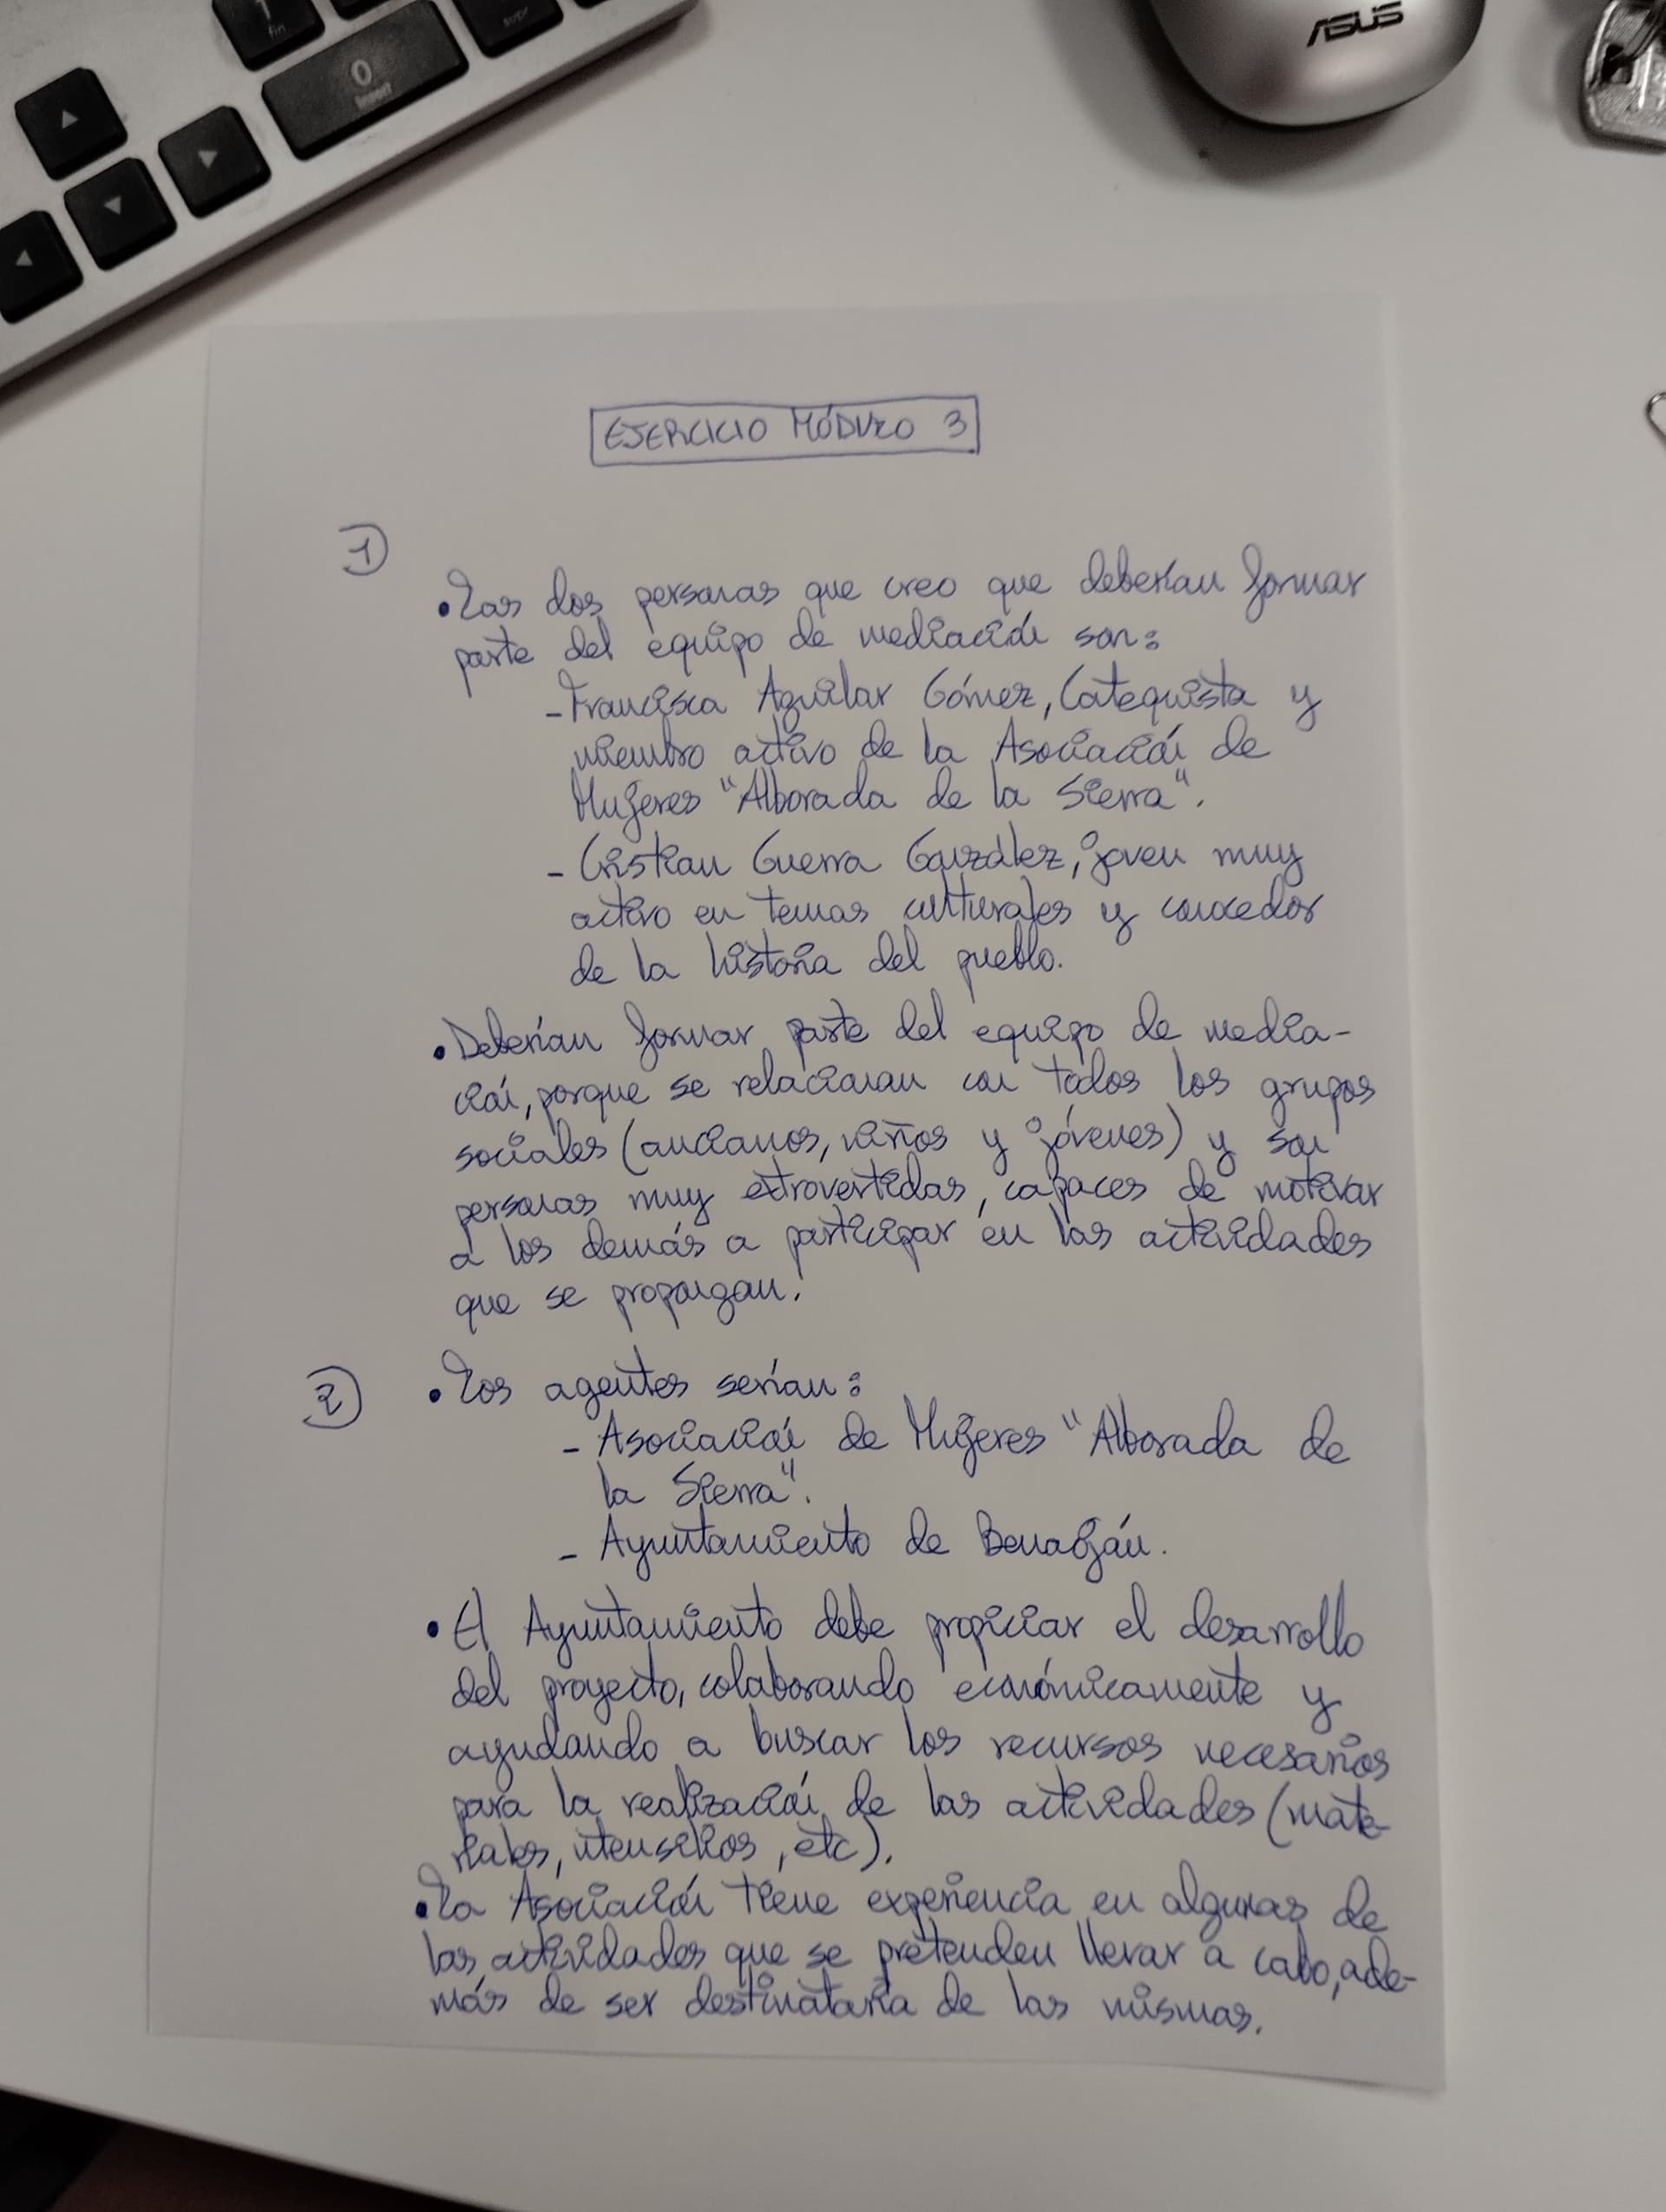 1
fin
supr
0
insert
ASUS
EJERCICIO MÓDULO 3
1
• Las dos personas que creo que deberían formar
parte del equipo de mediación son:
- Francisca Aguilar Gómez, Catequista y
miembro activo de la Asociación de
Mujeres "Alborada de la Sierra".
- Cristian Guerra González, joven muy
activo en temas culturales y conocedor
de la historia del pueblo.
• Deberían formar parte del equipo de media-
ción, porque se relacionan con todos los grupos
sociales (ancianos, niños y jóvenes) y son
personas muy extrovertidas, capaces de motivar
a los demás a participar en las actividades
que se propongan.
2
• Los agentes serían:
- Asociación de Mujeres "Alborada de
la Sierra".
- Ayuntamiento de Benaoján.
• El Ayuntamiento debe propiciar el desarrollo
del proyecto, colaborando económicamente y
ayudando a buscar los recursos necesarios
para la realización de las actividades (mate-
riales, utensilios, etc).
• La Asociación tiene experiencia en algunas de
las actividades que se pretenden llevar a cabo, ade-
más de ser destinataria de las mismas.